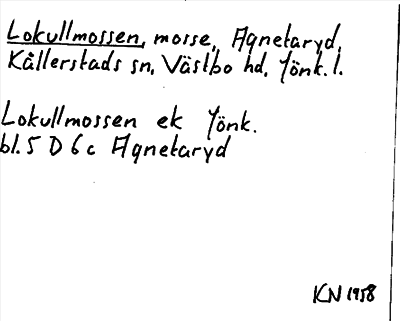 Lokullmossen, mosse, Agnetaryd,
Kållerstads sn, Västbo hd, Jönk. l.
Lokullmossen ek Jönk.
bl. 5 D 6 c Agnetaryd
KN 1958